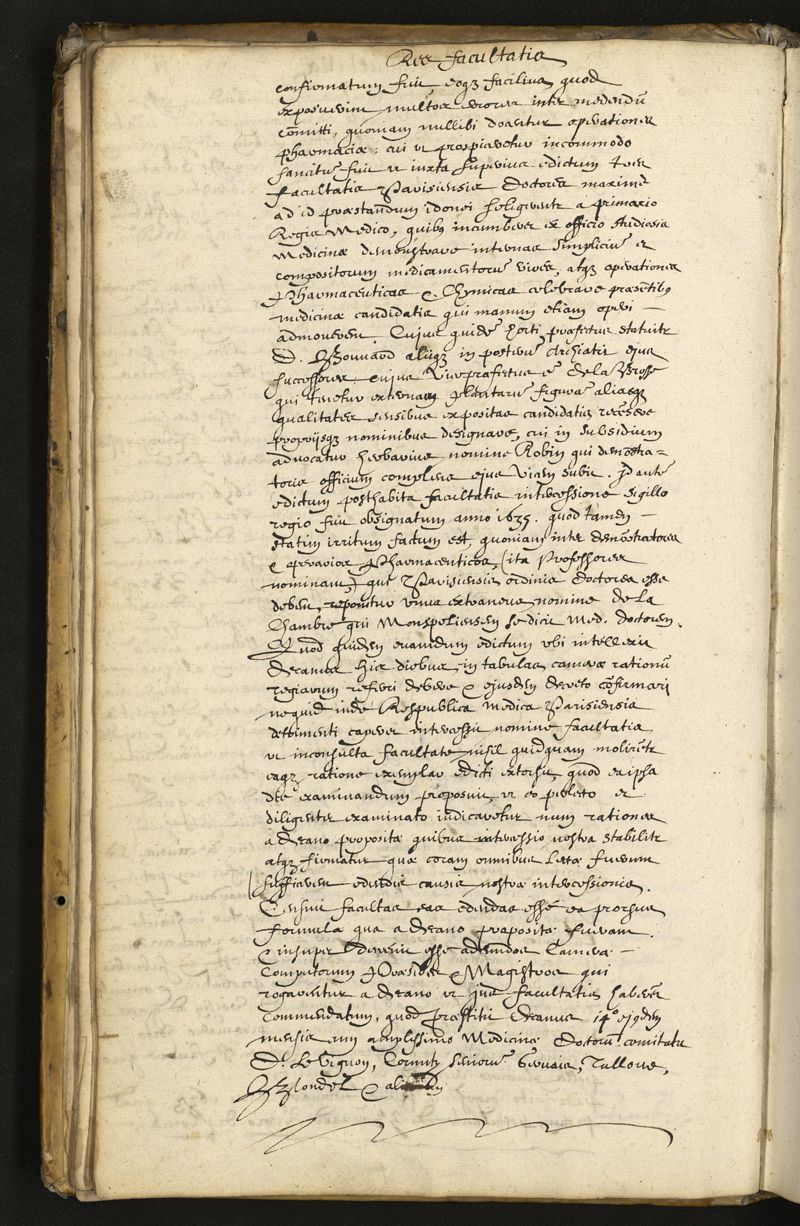 Res facultatis
confirmatum fuit eoq3 facilius quod
exposuerim multos errores inter medendū
cōmitti, quoniam nullibi docentur operationes
pharmaciæ: cui ut prospiceretur incommodo
sancitū fuit ut iuxta superius edictum tres
facultatis Parisiensis doctores maximè
ad id præstandum idonei seligerentr a primario
Regis Medico, quibq incumberet ex officio studiosis
Medicinæ demonstrare internas simplicium et
compositorum medicamentorū vires, atq3 operationes
Pharmaceuticas & Chymicas celebrare præsentibq
medicinæ candidatis qui manum etiam operi
admoverent. Cujus quidē horti præfectus statuitr
D. Bouvard aliiq3 in posterū Archiatri ejus
successores, cujus Vicepræfectus ē de la Brosse
qui tenetur externam plantarū figuram aliasq3
qualitates sensibus expositas candidatis recensere
propriisq3 nominibus designare, cui in subsidium
advocatur herbarius nomine Robin qui demōstra-
toris officium compleat ejus vicem subit. Id autē
edictum posthabita facultatis intercessione sigillo
regio fuit obsignatum anno 1635. quod tamen
statim irritum factum est, quoniam inter demōstratores
& operarios Pharmaceuticos, (ita Professores
nominant) qui Parisiensis ordinis doctores esse
debent, reponitur unus extraneus nomine de la
Chambre qui Monspeliensem se dicit Med. doctorem.
Quod quidem evanidum edictum ubi intellexit
Decanus his diebus in tabulas cameræ rationū
regiarum referri debere & ejusdem decreto cōfirmari
nequid inde Respublica medica Parisiensis
detrimenti caperet intercessit nomine facultatis
ut inconsulta facultate nihil quidquam moliretr
eaq3 ratione exemplar edicti extorsit, quod ea ipsa
die examinandum proposuit, ut eo perlecto et
diligenter examinato indicaretur num rationes
a Decano propositæ quibus intercessio nostra stabilitr
atq3 firmatur quæ coram omnibus lectæ fuerunt
sufficerent edendis causis nostræ intercessionis.
Censuit facultas eas edendas esse ea prorsus
formula qua a Decano propositæ fuerant.
& insuper decrevit esse adeundos Cameræ
Computorum Præsides & Magistros qui
rogarentur a Decano ut jus facultatis haberēt
commendatum, quod præstitit Decanus 14º ejqdem
mensis cum amplissimo Medicinæ Doctorū comitatu
D. Le Vignon, Cornuty seniorū Gervais, Tullone,
Blondel & ali